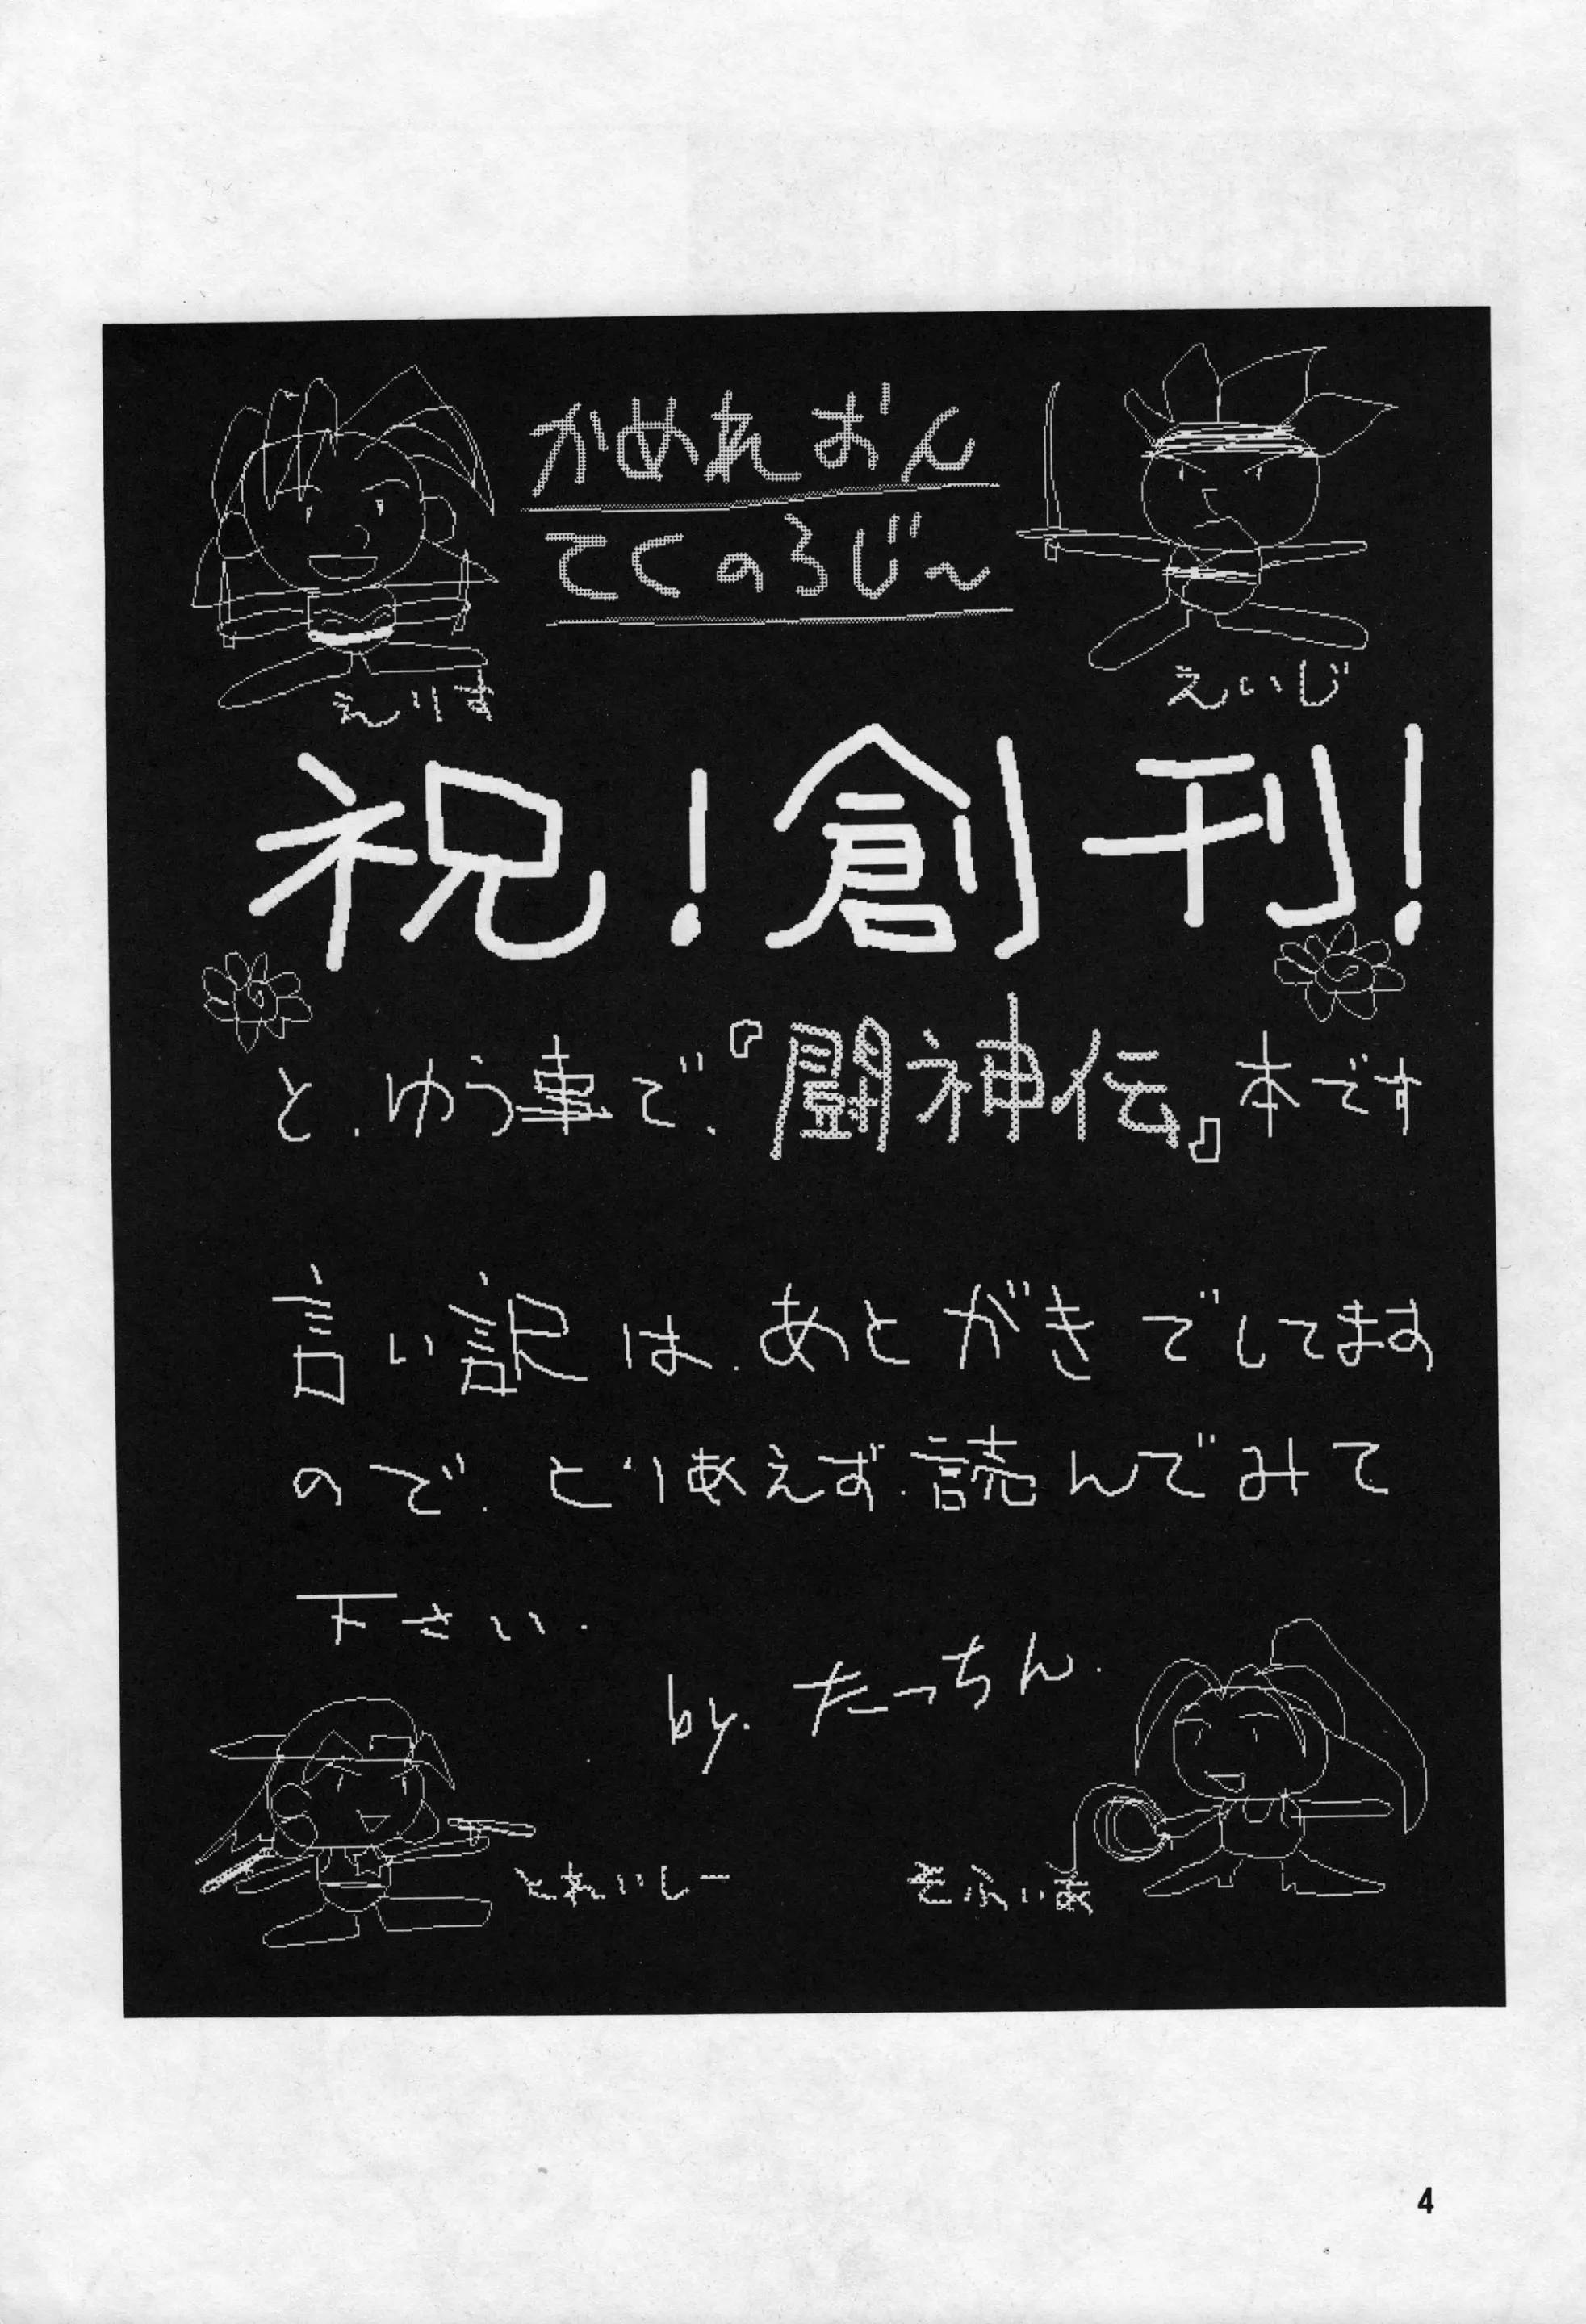 かめれおん
てくのろじ〜
えりす
えいじ
祝！創刊！
と．ゆう事で．『闘神伝』本です
言い訳は．あとがきでしてます
ので．とりあえず．読んでみて
下さい．
by. たっちん．
とれいしー
そふぃあ
4